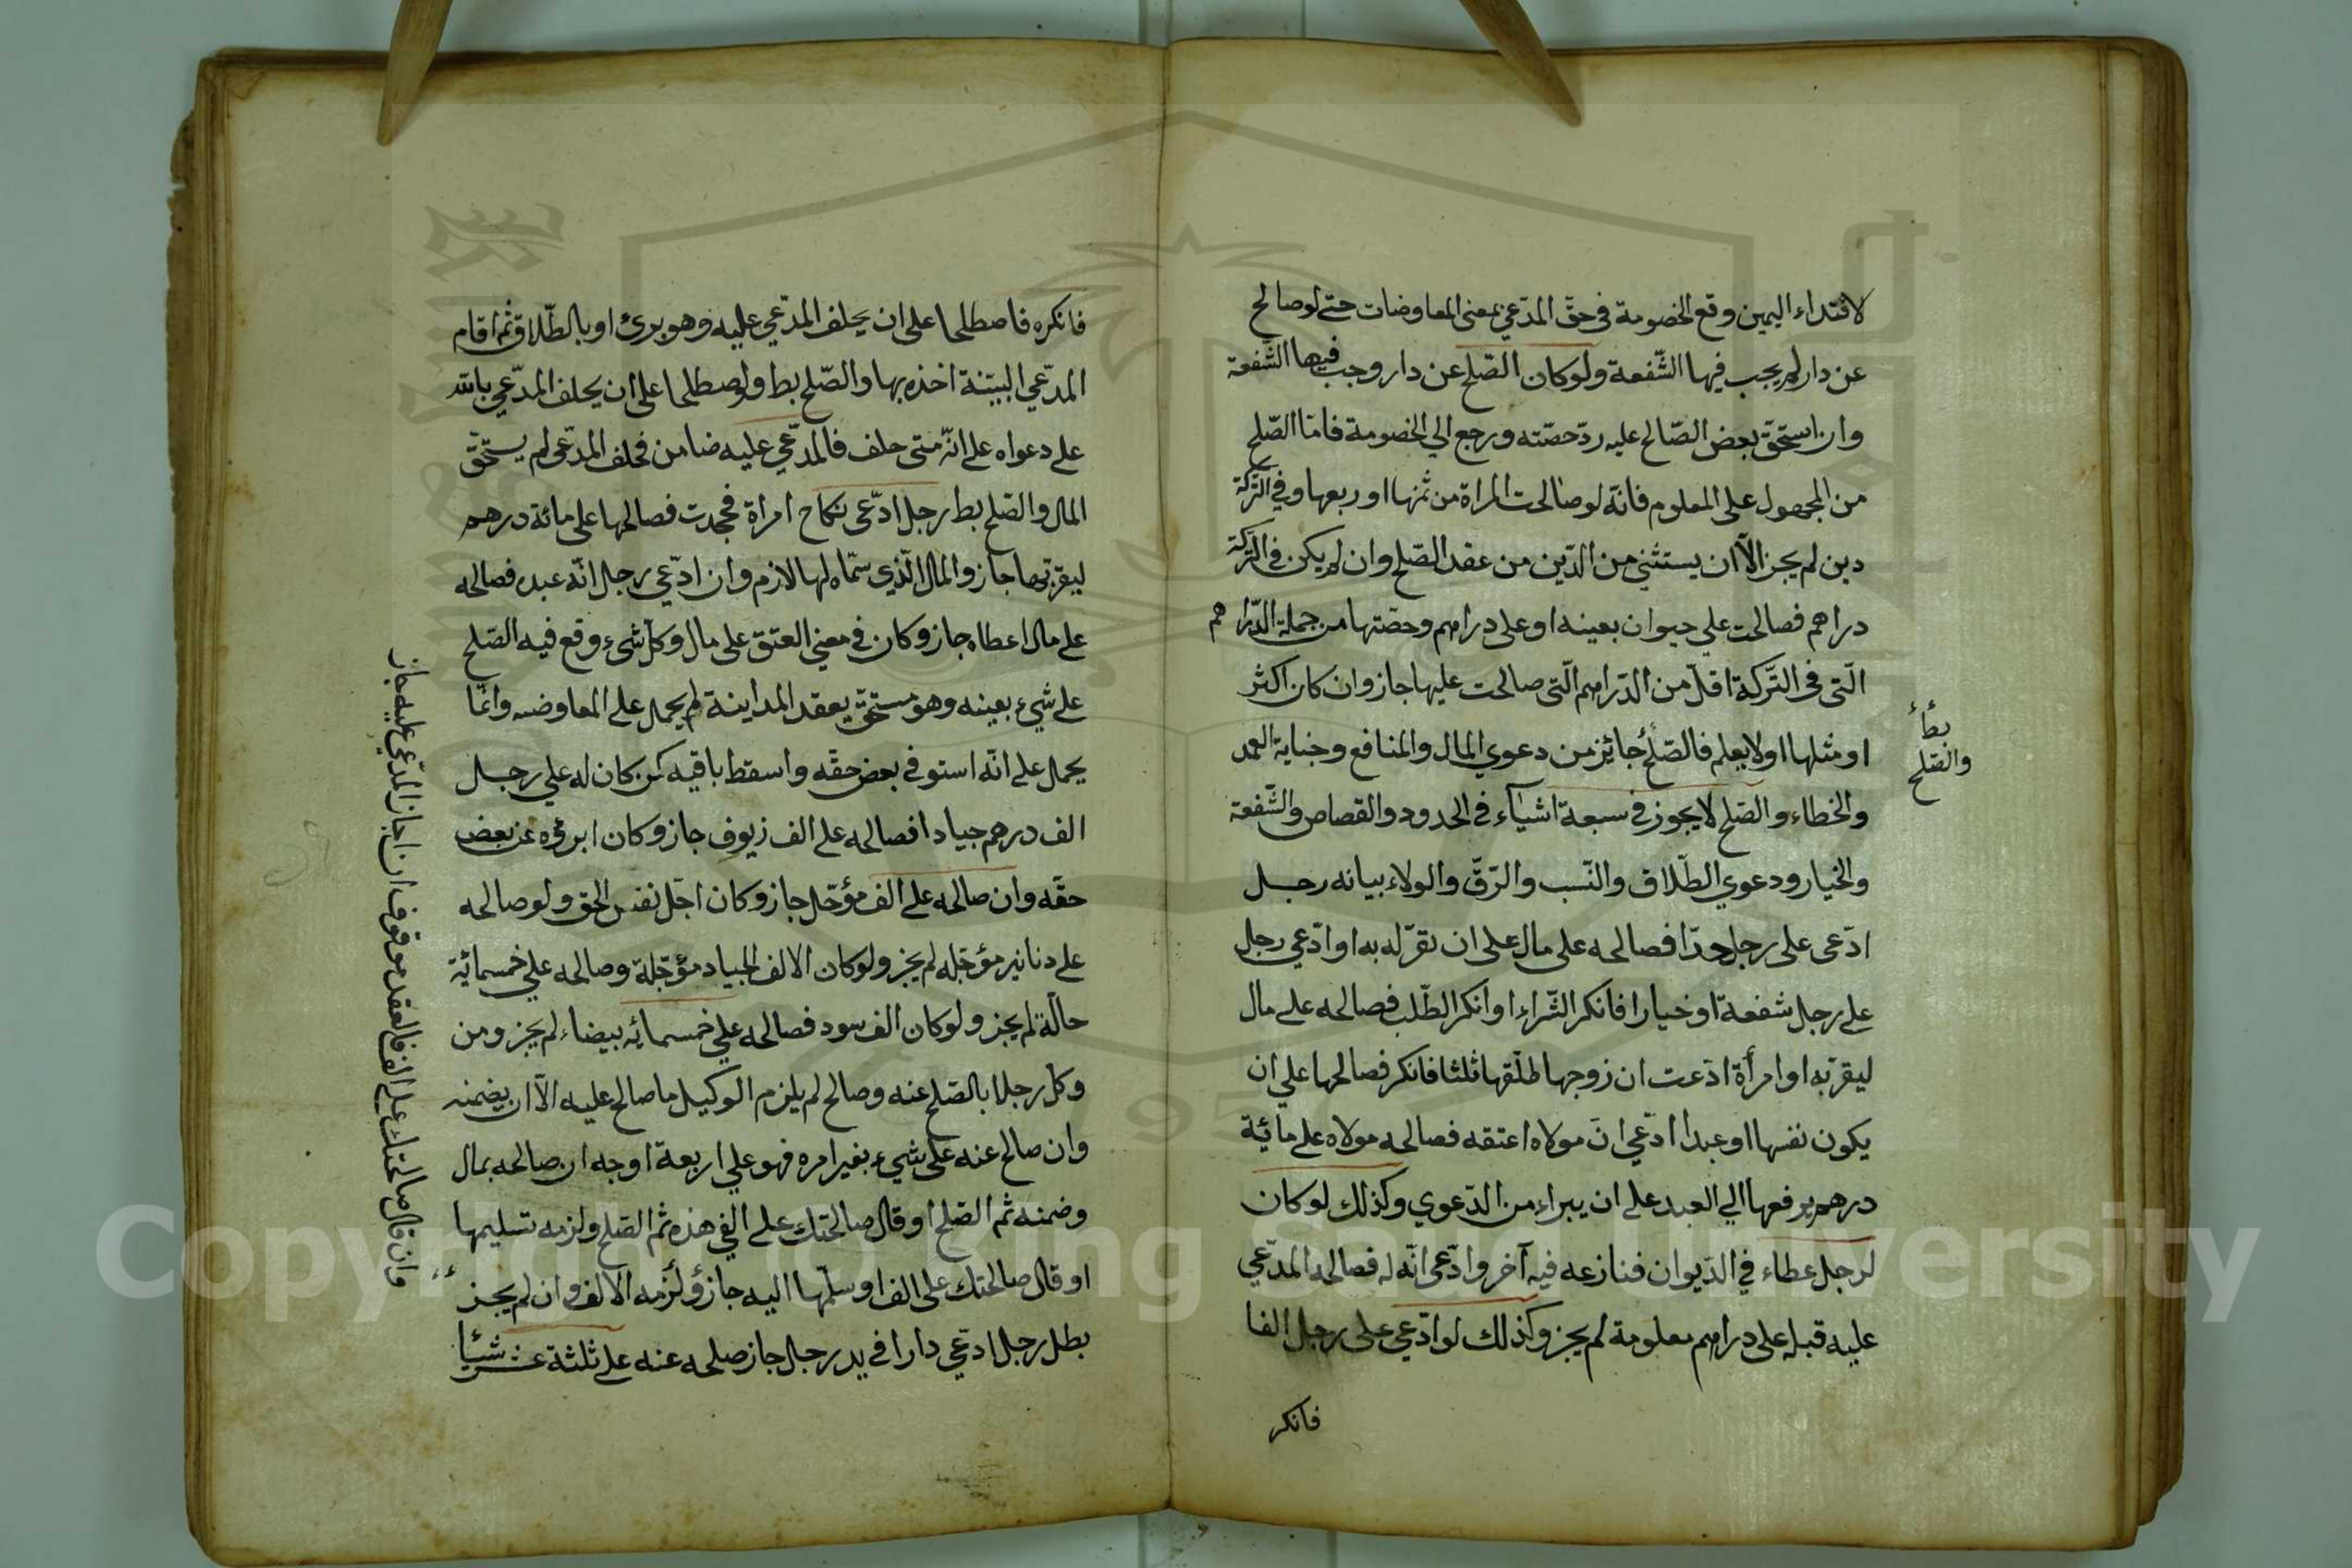 لافتداء اليمين وقع الخصومة في حقّ المدّعي بمعنى المعاوضات حتى لو صالح
عن دار لم يجب فيها الشّفعة ولو كان الصّلح عن دار وجب فيها الشّفعة
وان استحقّ بعض الصّالح عليه ردّ حصّته ورجع الي الخصومة فامّا الصّلح
من المجهول على المعلوم فانّه لو صالحت المراة من ثمنها او ربعها وفي التّركة
دين لم يجز الّا ان يستثني من الدّين من عقد الصّلح وان لم يكن في التّركة
دراهم فصالحت علي حيوان بعينه او على دراهم وحصّتها من جملة الدّراهم
الّتي في التّركة اقلّ من الدّراهم الّتي صالحت عليها جاز وان كان اكثر
او مثلها او لا يعلم فالصّلح جائز من دعوي المال والمنافع وجناية العمد
والخطاء والصّلح لا يجوز في سبعة اشيآء في الحدود والقصاص والشّفعة
والخيار ودعوي الطّلاق والنّسب والرّقّ والولاء بيانه رجل
ادّعى على رجل حدّا فصالحه على مال على ان يقرّ له به او ادّعي رجل
علي رجل شفعة او خيارا فانكر الشّراء او انكر الطّلب فصالحه علي مال
ليقرّ به او امرأة ادّعت ان زوجها طلّقها ثلثا فانكر فصالحها علي ان
يكون نفسها او عبدا ادّعي انّ مولاه اعتقه فصالحه مولاه علي مائية
درهم يرفعها الي العبد علي ان يبراء من الدّعوي وكذلك لو كان
لرجل عطاء في الدّيوان فنازعه فيه آخر وادّعى انّه له فصالحه المدّعي
عليه قبله على دراهم معلومة لم يجز وكذلك لو ادّعي على رجل الفا
فانكر
بطأ
والصّلح
فانكره فاصطلحا على ان يحلف المدّعي عليه وهو برئ او بالطّلاق ثم اقام
المدّعي البيّنة اخذه بها والصّلح بط ولو اصطلحا على ان يحلف المدّعي بالله
علي دعواه علي انّه متى حلف فالمدّعي عليه ضامن فحلف المدّعى لم يستحقّ
المال والصّلح بط رجل ادّعى نكاح امراة فجحدت فصالحها على مائة درهم
ليقرّ بها جاز والمال الّذي سمّاه لها لازم وان ادّعي رجل انّه عبده فصالحه
علي مال اعطاه جاز وكان في معني العتق على مال وكلّ شيء وقع فيه الصّلح
علي شيء بعينه وهو مستحقّ بعقد المداينة لم يحمل علي المعاوضه وانّما
يحمل علي انّه استوفي بعض حقّه واسقط باقيه كمن كان له علي رجل
الف درهم جيادا فصالحه علي الف زيوف جاز وكان ابروه عن بعض
حقّه وان صالحه علي الف مؤجّل جاز وكان اجّل نفس الحق ولو صالحه
علي دنانير مؤجّله لم يجز ولو كان الالف الجياد مؤجّلة وصالحه علي خمسمائية
حالّة لم يجز ولو كان الف سود فصالحه علي خمسمائه بيضاء لم يجز ومن
وكل رجلا بالصّلح عنه وصالح لم يلزم الوكيل ما صالح عليه الّا ان يضمنه
وان صالح عنه علي شيء بغير امره فهو علي اربعة اوجه ان صالحه بمال
وضمنه ثم الصّلح او قال صالحتك علي الفي هذه ثم الصّلح ولزمه تسليمها
او قال صالحتك على الف او سلّمها اليه جاز ولزمه الالف وان لم يجز
بطل رجل ادّعي دارا في يد رجل جاز صلحه عنه علي ثلثة عشر شيئا
وان قال صالحتك علي الف فالعقد موقوف ان اجاز المدّعي عليه جاز